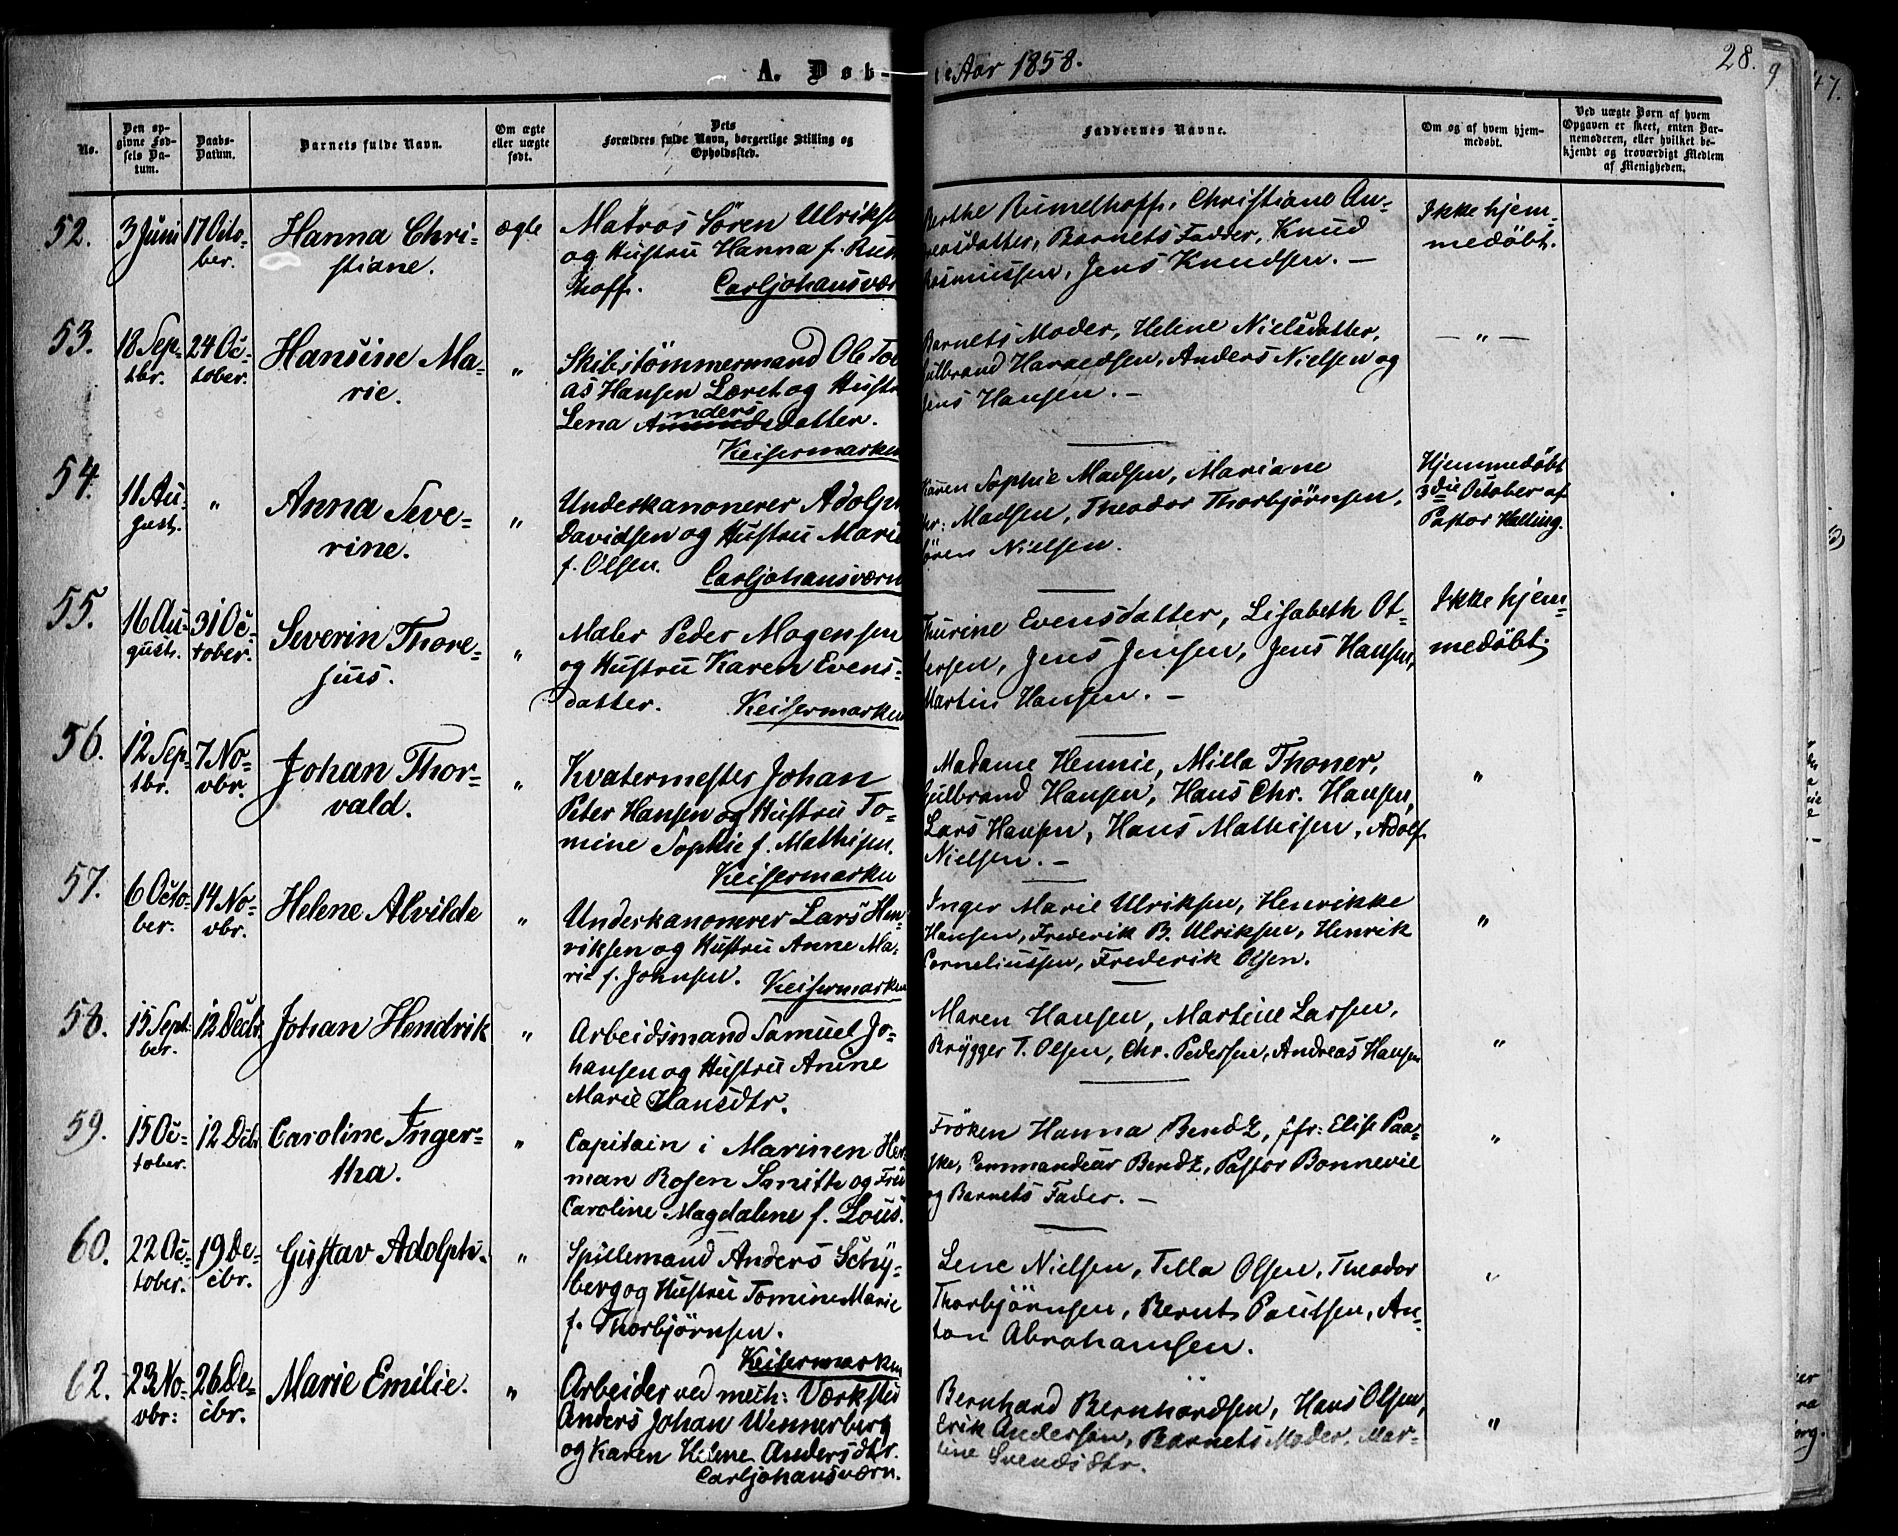 A. Døb-
te Aar 1858.
28.
No.
Den op-
givne Fød-
sels Da-
tum.
Daabs-
Datum.
Barnets fulde Navn.
Om ægte
eller uægte
født.
Dets
Forældres fulde Navn, borgerlige Stilling og
Opholdssted.
Faddernes Navne.
Om og af hvem hjem-
medøbt.
Ved uægte Børn af hvem
Opgaven er skeet, enten Bar-
nemoderen, eller hvilket be-
kjendt og troværdigt Medlem
af Menigheden.
52.
3 Juni
17 Octo-
ber.
Hanna Chri-
stiane.
ægte
Matros Sören Ulriks
og Hustru Hanna f. Rum
hoff. Carljohansværn
Berthe Rumelhoff, Christiane An-
dreasdatter, Barnets Fader, Knud
Rasmussen, Jens Knudsen. —
Ikke hjem-
medøbt.
53.
18 Sep-
tbr.
24 Oc-
tober.
Hansine Ma-
rie.
"
Skibstömmermand Ole To
as Hansen Læret og Hustr
Lena Amundsdatter.
nders
Keisermarken
Barnets Moder, Helene Nielsdatter,
Gulbrand Haraldsen, Anders Nielsen og
Jens Hansen. —
— " —
54.
11 Au-
gust.
"
Anna Seve-
rine.
"
Underkanonerer Adolph
Davidsen og Hustru Marie
f. Olsen. Carljohansværn
Karen Sophie Madsen, Mariane
Chr: Madsen, Theodor Thorbjørnsen,
Sören Nielsen.
Hjemmedøbt
3die October af
Pastor Halling.
55.
16 Au-
gust.
31 Oc-
tober.
Severin Thore-
sius.
"
Maler Peder Mogensen
og Hustru Karen Evens-
datter. Keisermarken
Thurine Evensdatter, Lisabeth Ot-
tersen, Jens Jensen, Jens Hansen,
Martin Hansen. —
Ikke hjem-
medøbt.
56.
12 Sep-
tbr.
7 No-
vbr.
Johan Thor-
vald.
"
Kvatermester Johan
Peter Hansen og Hustru To-
mine Sophie f. Mathisen.
Keisermarken
Madame Hennie, Milla Thoner,
Gulbrand Hansen, Hans Chr. Hansen,
Lars Hansen, Hans Mathisen, Adolf
Nielsen. —
"
57.
6 Octo-
ber.
14 No-
vbr.
Helene Alvilde
"
Underkanonerer Lars Hen-
riksen og Hustru Anne Ma-
rie f. Johnsen. Keisermarken
Inger Marie Ulriksen, Henrikke
Hansen, Frederik B. Ulriksen, Henrik
Corneliussen, Frederik Olsen.
"
58.
15 Sept-
ber.
12 Decbr.
Johan Hendrik
"
Arbeidsmand Samuel Jo-
hansen og Hustru Anine
Marie Hansdtr.
Maren Hansen, Martine Larsen,
Brygger T. Olsen, Chr. Pedersen, Andreas Hansen
"
59.
15 Oc-
tober.
12 Dcbr
Caroline Inger-
tha.
"
Capitain i Marinen Her-
man Rosen Smith og Frue
Caroline Magdalene f. Lous.
Frøken Hanna Bendz, Jfr: Elise Paa-
ske, Commandeur Bendz, Pastor Bonnevie
og Barnets Fader. —
"
60.
22 Oc-
tober.
19 De-
cbr.
Gustav Adolph.
"
Spillemand Anders Schy-
berg og Hustru Tomine Marie
f. Thorbjørnsen.
Keisermarken
Lene Nielsen, Tilla Olsen, Theodor
Thorbjørnsen, Bernt Poulsen, An-
ton Abrahamsen.
"
62.
23 No-
vbr:
26 De-
cbr.
Marie Emilie.
"
Arbeider ved mech: Værksted
Anders Johan Wennerberg
og Karen Helene Andersdtr.
Carljohansværn.
Bernhard Bernhardsen, Hans Olsen,
Erik Andersen, Barnets Moder, Mar-
tine Svendsdtr.
"